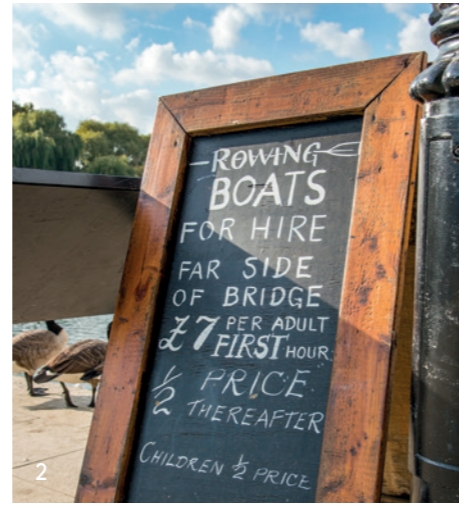 ROWING
BOATS
FOR HIRE
FAR SIDE
OF BRIDGE
£7 PER ADULT
FIRST HOUR
½ PRICE
THEREAFTER
CHILDREN ½ PRICE
2